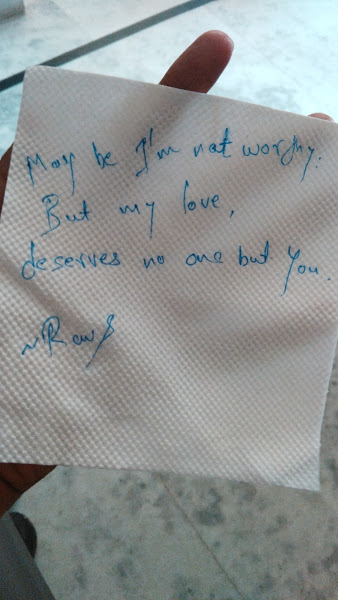 May be I'm not worthy.
But my love,
deserves no one but You.